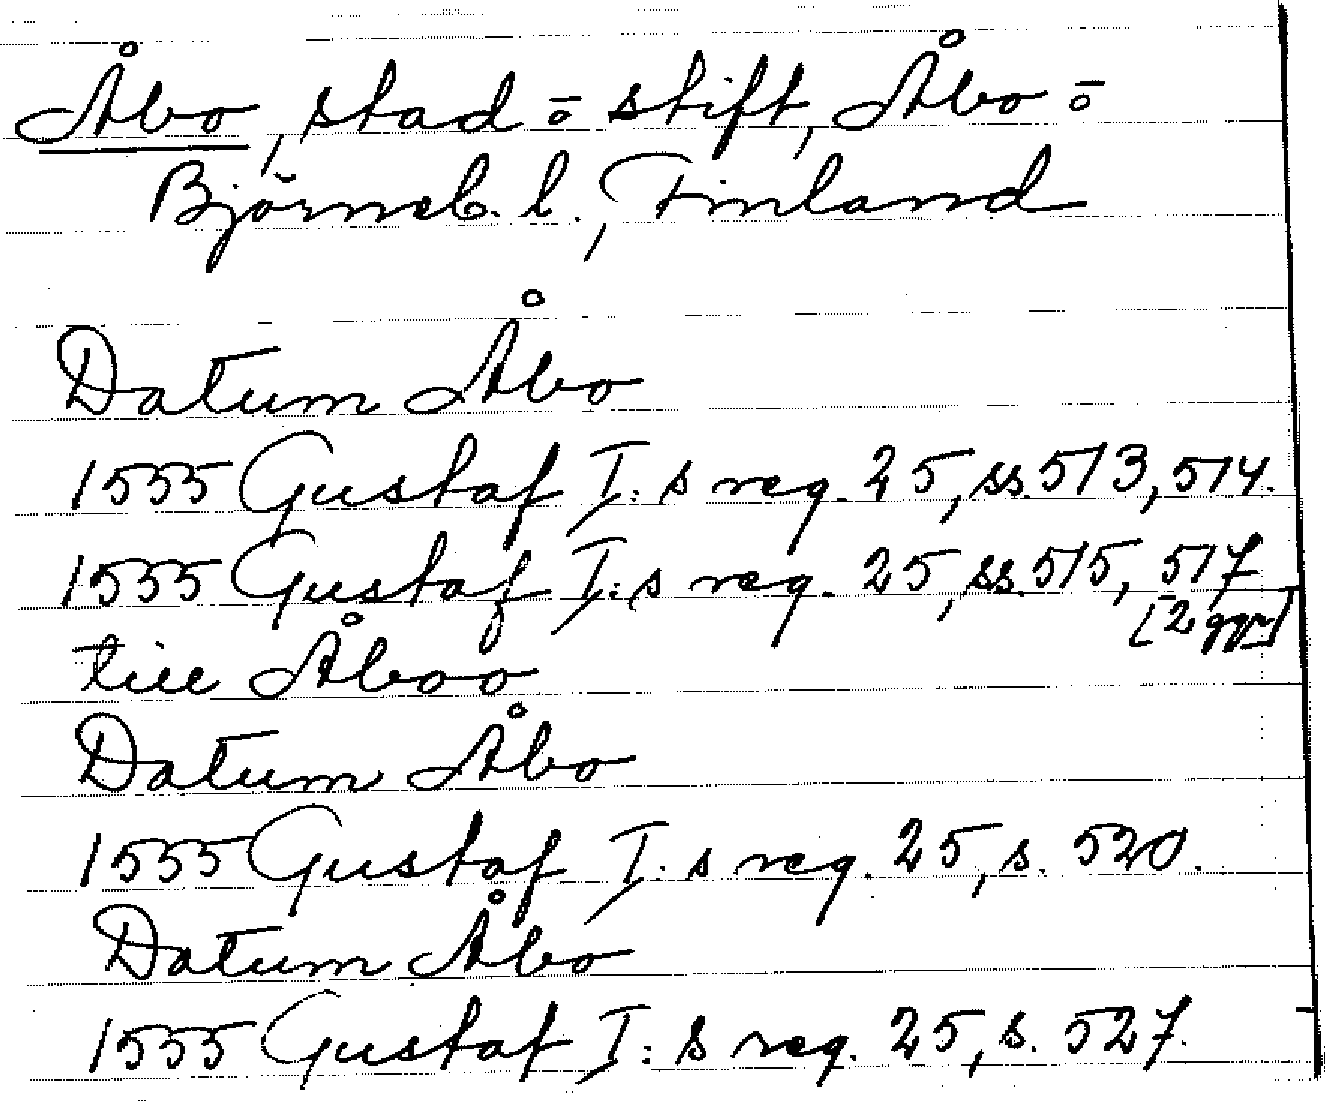 Åbo, stad ō stift, Åbo ō
Björneb. l., Finland
Datum Åbo
1555 Gustaf I:s reg. 25, ss. 513, 514.
1555 Gustaf I:s reg. 25, ss. 515, 517
[2 ggr]
till Åboo
Datum Åbo
1555 Gustaf I:s reg. 25, s. 520.
Datum Åbo
1555 Gustaf I:s reg. 25, s. 527.